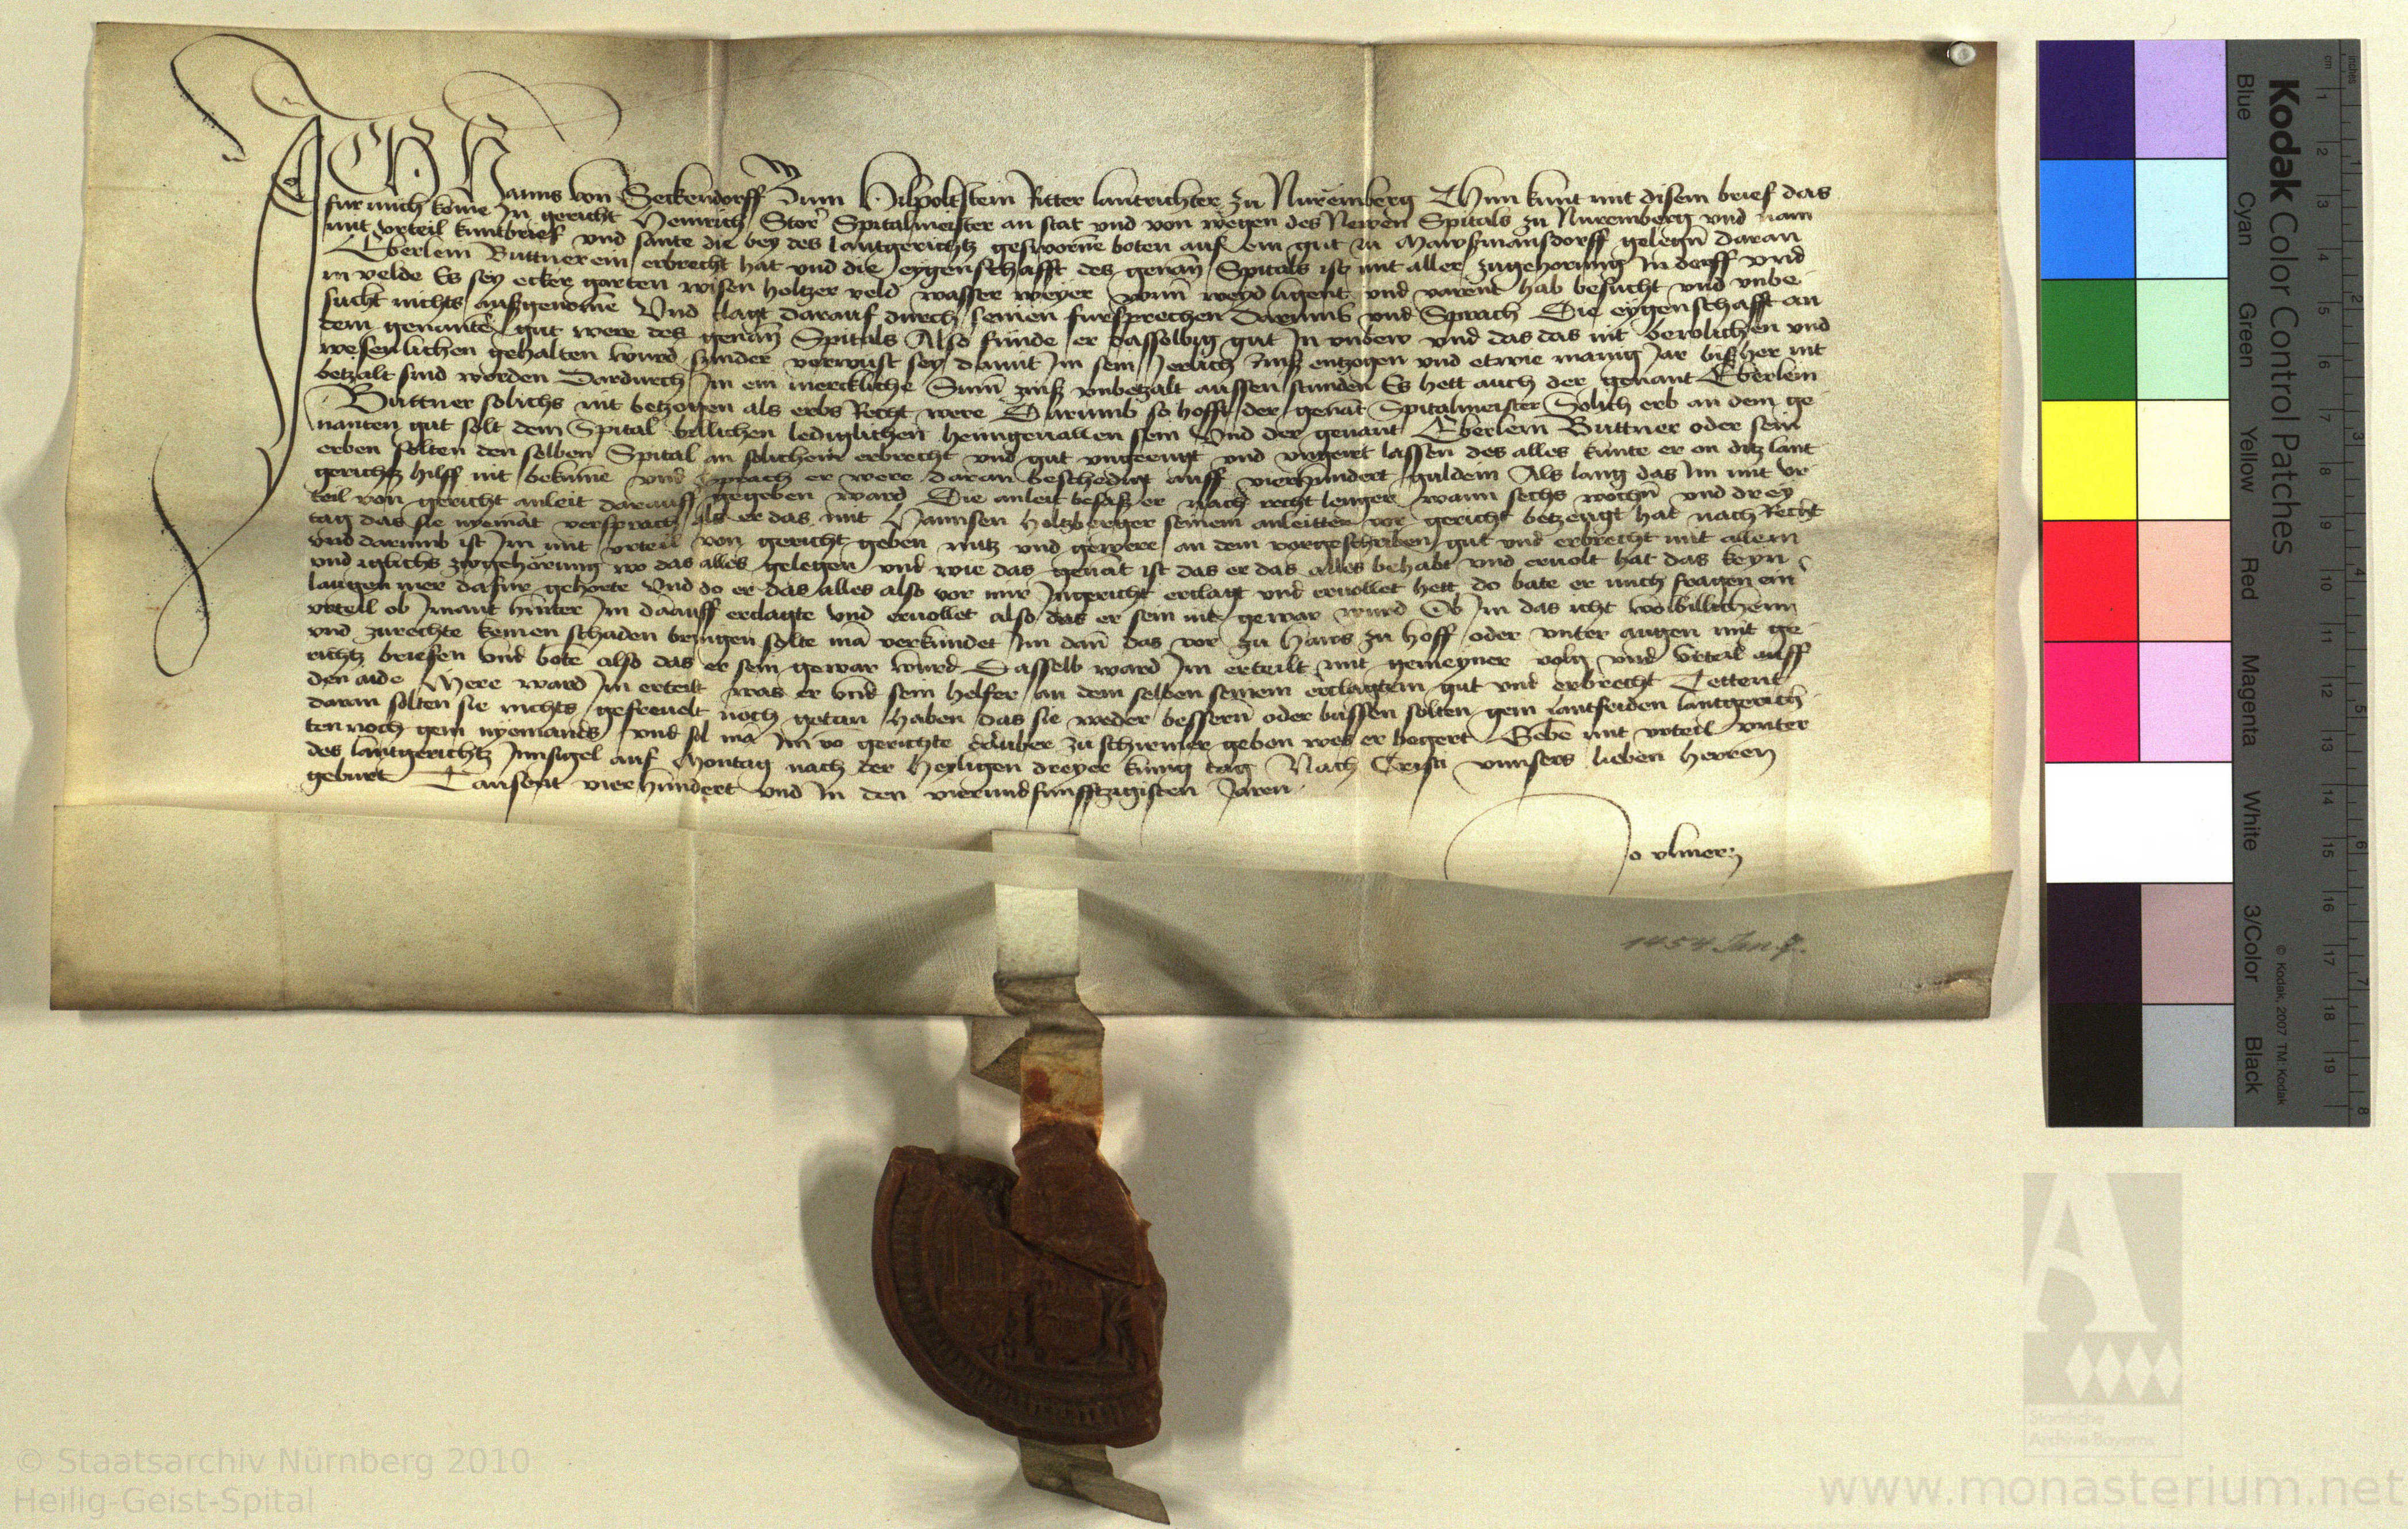 ICH Hanns von Seckendorff Zum Hilpoltstein Ritter lantrichter zu Nuremberg Thun kunt mit disem brief das
fur mich kome In gericht Heinrich Storˀ Spitalmeister an stat und von wegen des Newen Spitals zu Nuremberg und nam
mit vrteil kuntbrief und sante die bey des lantgerichtz gesworne boten auf ein gut zu gelegn̄ daran
Eberlein Buttner ein erbrecht hat und die eygenschafft des genan̄ Spitals ist mit aller zugehorung In dorff vnd
in velde Es sey ecker garten wisen holtzer veld wasser weyer wunn̄ weyd ligent und varent hab besucht und vnbe
sucht nichts aufgenome Und clagt darauf durch seinen fursprechen darumb und Sprach Die eygenschafft an
dem genante gut were des genan̄ Spitals Also funde er dasselbig gut In vnbew und das das nit bewlichen und
wesenlichen gehalten wurd sunder verwust sey damit Im sein Jerlich zinß entzogen und etwie manig Jar bißher nit
betzalt sind worden Dardurch Im ein merckliche Sum̄ zinß vnbetzalt aussen stunden Es hett auch der genant Eberlein
Buttner solichs nit betzogen als erbs Recht were Darumb so hofft der genāt Spitalmeister Solich erb an dem ge
nanten gut solt dem Spital billichen lediglichen heimgevallen sein Und der genant Eberlein Buttner oder sein
erben solten den selben Spital an solichem erbrecht und gut vngeengt und vngeirt lassen des alles kunte er on ditz lant
gerichtz hilff nit bekume und Sprach er were daran beschedigt auff vierhundert guldein Als lang das Im mit vr
teil von gericht anleit darauff gegeben ward Die anleit besaß er nach recht lenger wann sechs wochn̄ und drey
tag das sie nyemāt versprach Als er das mit Hannsen Holtzberger seinem anleitter vor gericht betzeugt hat nach Recht
und darumb ist Im mit vrteil von gericht geben nutz und gewere an dem vorgeschriben gut und erbrecht mit allem
und iglichs zugehorung wo das alles gelegen und wie das genāt ist das er das alles behabt und ervolt hat das keyn
laugen mer dafur gehorte Und do er das alles also vor mir Ingericht erclagt und ervollet hett do bate er mich fragen ein
vrteil ob Jmant hinter Im darauff erclagte und ervollet also das er sein nit gewar wurd Ob Im das icht
und zurechte keinen schaden bringen solte mā verkundet Im dan̄ das vor zu Haws zu Hoff oder vnter augen mit ge
richtz briefen und bote also das er sein gewar wurd Dasselb ward Im erteilt mit gemeyner volg und vrteil auff
den aide Mere ward Im erteilt was er und sein helfer an dem selben seinem erclagtem gut und erbrecht Tettent
daran solten sie nichts gefrevelt noch getan haben das sie weder bessern oder bussen solten gein lantfriden lantgerich
ten noch gein nyemands und sol mā Im vō gerichte daruber zu schirmer geben wes er begert Gebē mit vrteil vnter
des lantgerichtz Innsigel auf Montag nach der Heyligen dreyer kunig tag Nach Cristi vnnsers lieben herren
geburt Tausent vierhundert und In den vierundfunfftzigisten Jaren
Jo vlmer
1454 Jan 7.
Kodak Color Control Patches
Blue Cyan Green Yellow Red Magenta White 3/Color Black
© Kodak, 2007 TM: Kodak
cm 1 2 3 4 5 6 7 8 9 10 11 12 13 14 15 16 17 18 19
inches 1 2 3 4 5 6 7 8
Staatliche
Archive Bayerns
© Staatsarchiv Nürnberg 2010
Heilig-Geist-Spital
www.monasterium.net